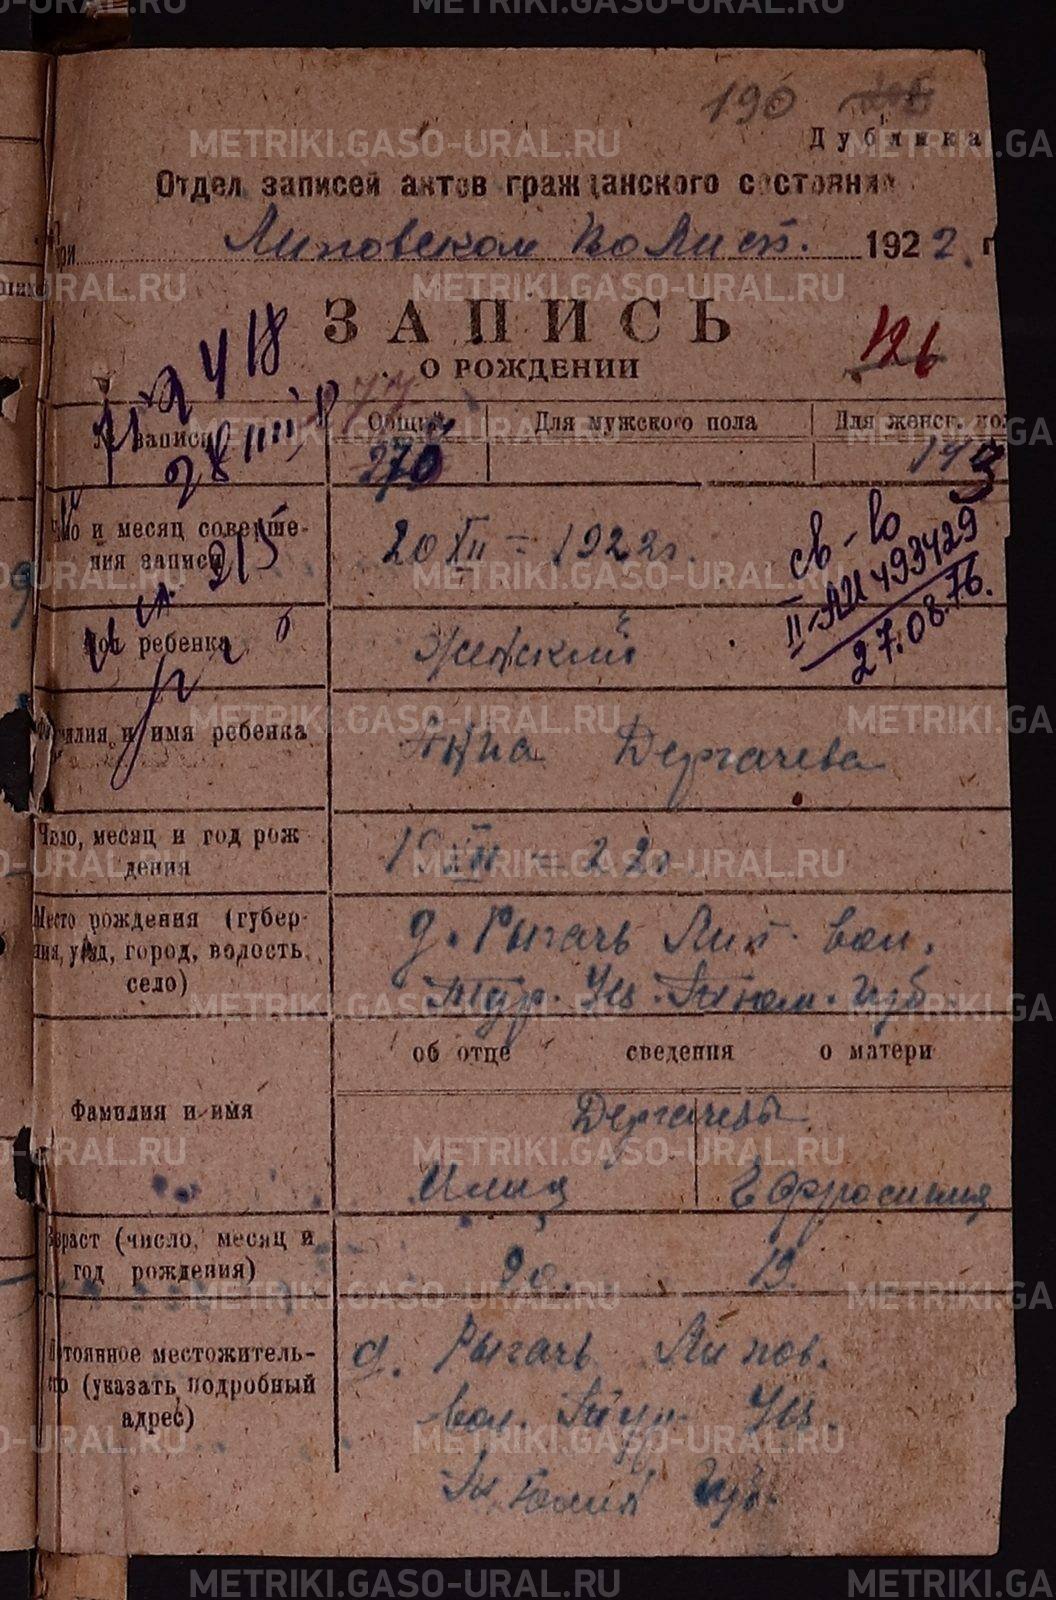 190
Дублика
Отдел записей актов гражданского состояния
при Липовском Волист. 1922 г
ЗАПИСЬ
О РОЖДЕНИИ
126
№ 2418
№ записи
Общий
Для мужского пола
Для женск. пол
270
143
Число и месяц соверше-
ния записи
20 XII = 1922г.
св-во
II-АИ 493429
27.08.76.
Пол ребенка
Женский
Фамилия и имя ребенка
Анна Дергачева
Число, месяц и год рож
дения
XII = 22г.
Место рождения (губер-
ния, уезд, город, волость,
село)
д. Рычачь Лип. вол.
Тур. Уез. Тюм. губ.
об отце сведения о матери
Фамилия и имя
Дергачевы
Илья
Ефросиния
Возраст (число, месяц и
год рождения)
20.
19.
Постоянное местожитель-
ство (указать подробный
адрес)
д. Рычачь Липов.
вол. Тур. Уез.
Тюмен губ.
METRIKI.GASO-URAL.RU